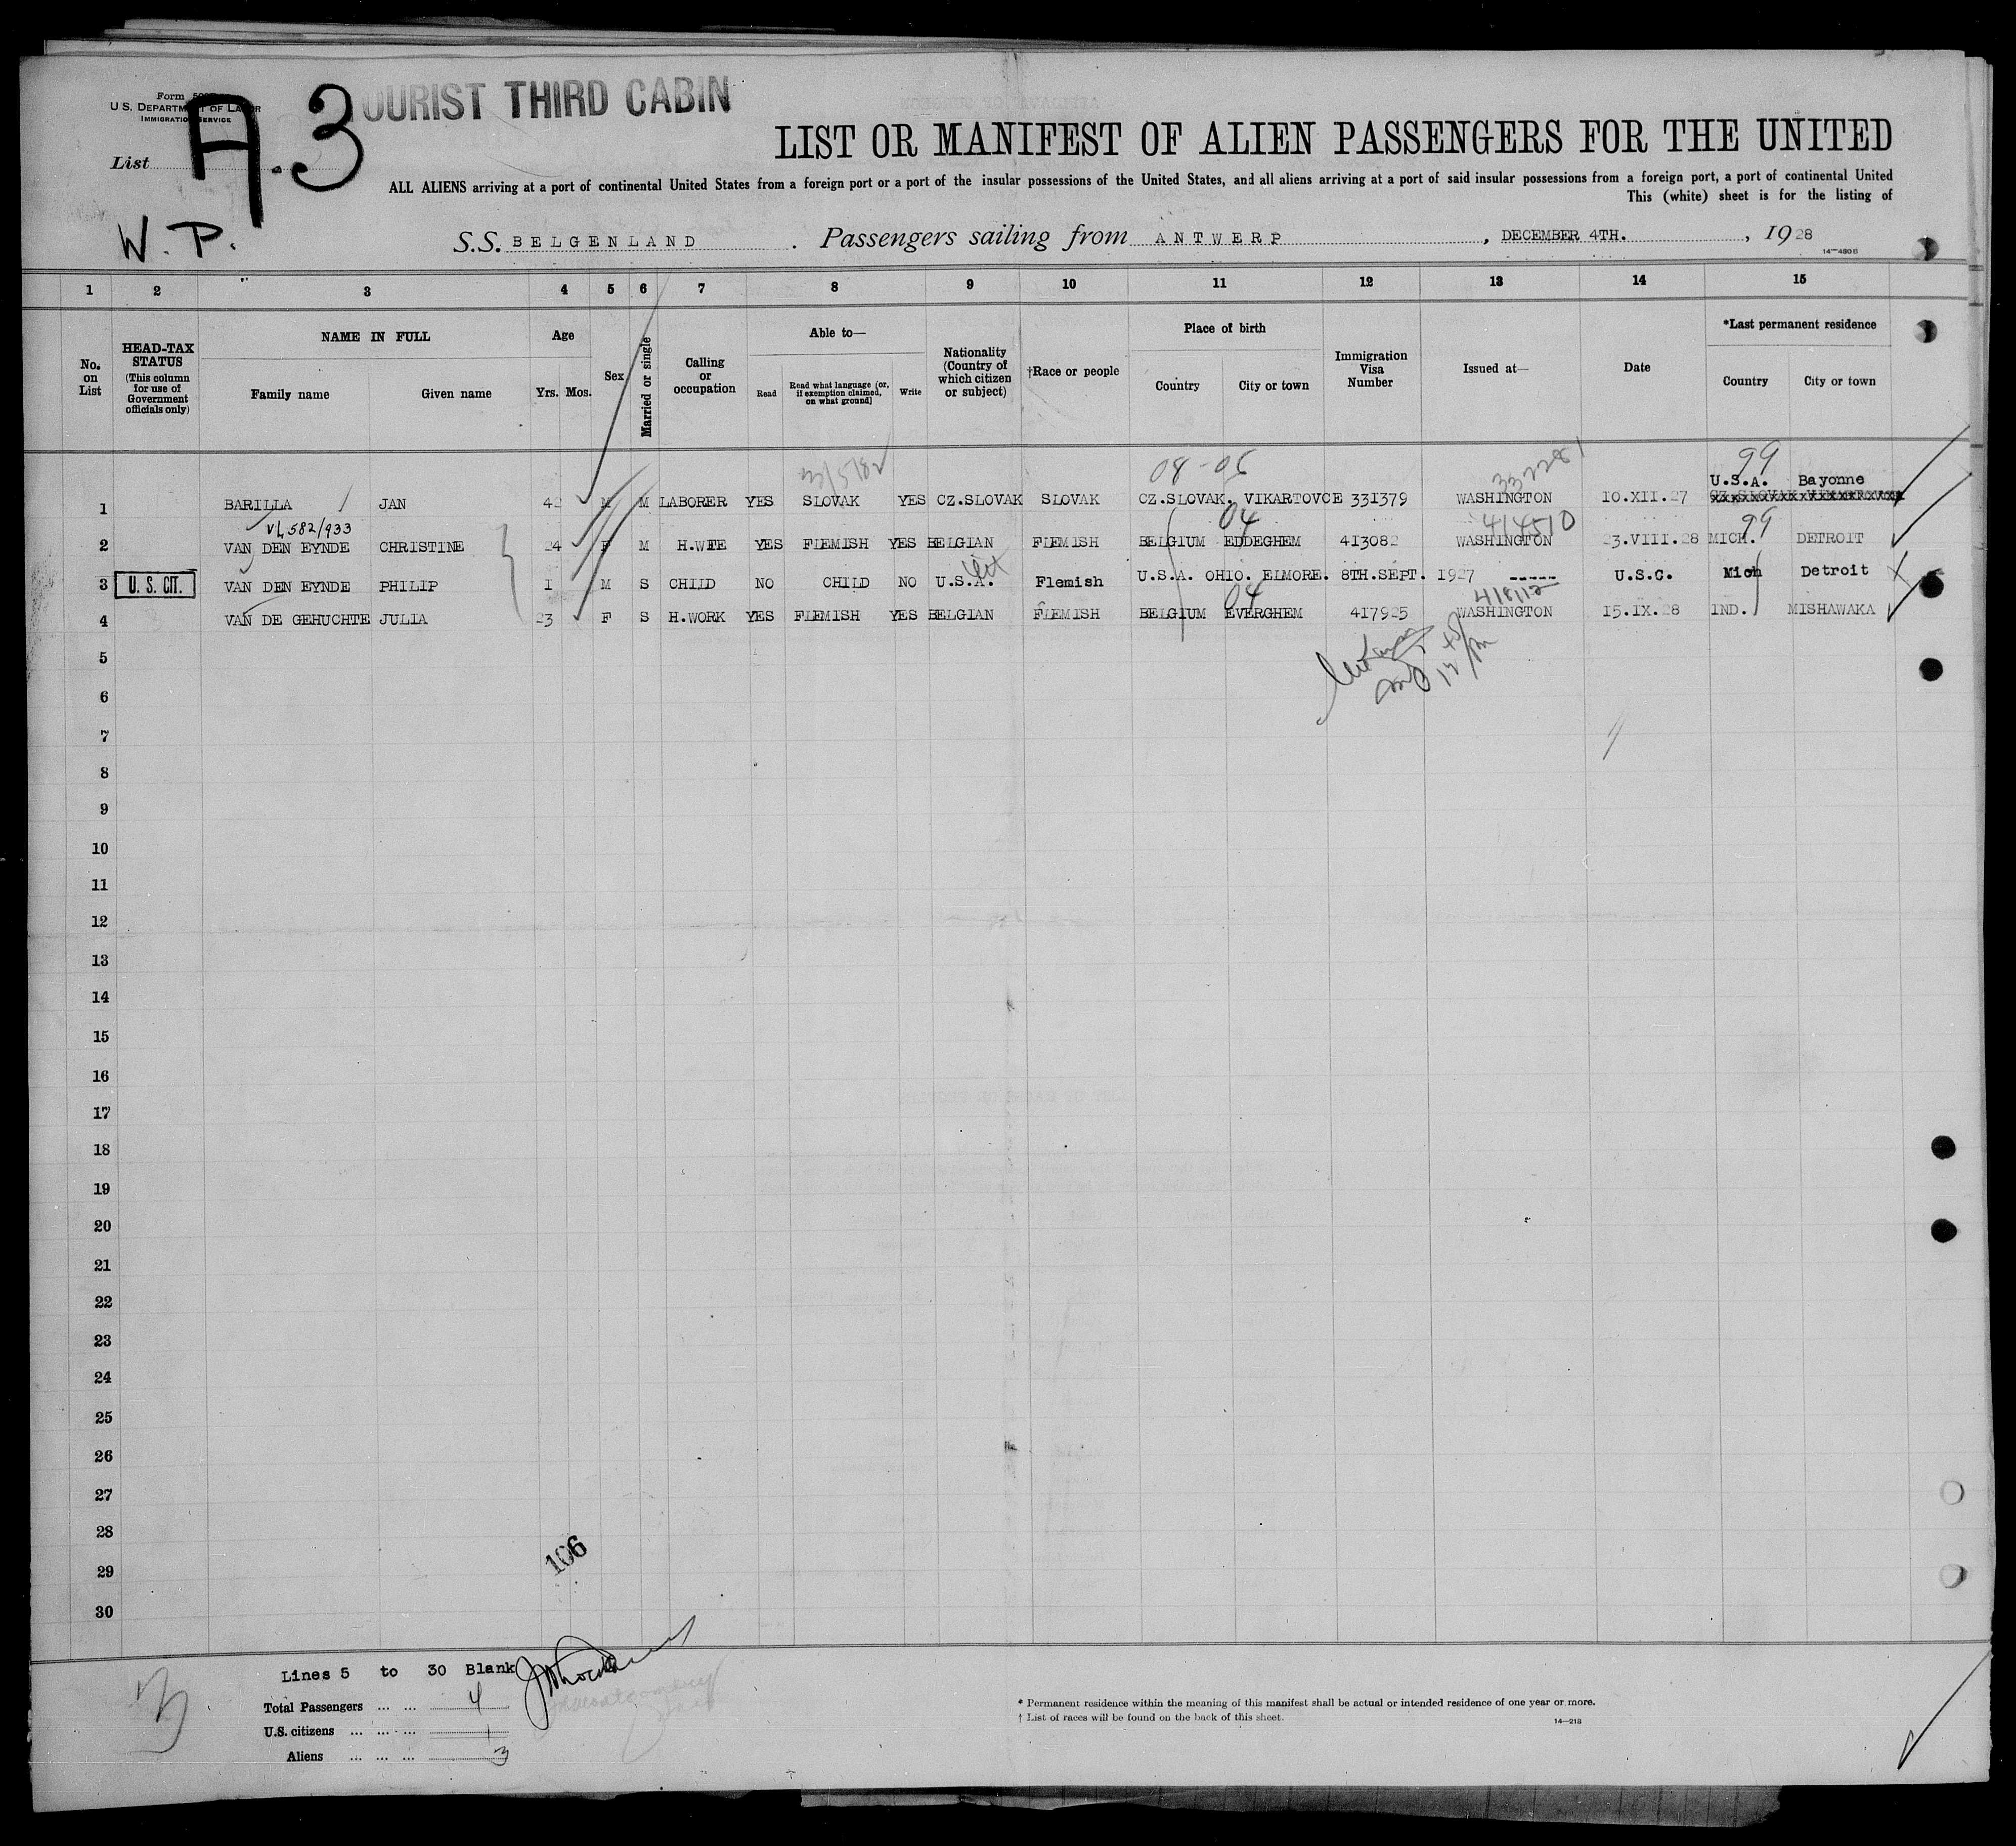 Form
U.S. DEPARTMENT OF LABOR
IMMIGRATION SERVICE
List
A.3
OURIST THIRD CABIN
LIST OR MANIFEST OF ALIEN PASSENGERS FOR THE UNITED
ALL ALIENS arriving at a port of continental United States from a foreign port or a port of the insular possessions of the United States, and all aliens arriving at a port of said insular possessions from a foreign port, a port of continental United
This (white) sheet is for the listing of
W. P.
S.S. BELGENLAND. Passengers sailing from ANTWERP, DECEMBER 4TH., 1928
1 2 3 4 5 6 7 8 9 10 11 12 13 14 15
No. on List
HEAD-TAX STATUS
(This column for use of Government officials only)
NAME IN FULL
Family name Given name
Age
Yrs. Mos.
Sex
Married or single
Calling or occupation
Able to—
Read Read what language (or, if exemption claimed, on what ground) Write
Nationality (Country of which citizen or subject)
†Race or people
Place of birth
Country City or town
Immigration Visa Number
Issued at—
Date
*Last permanent residence
Country City or town
08-06 99
U.S.A. Bayonne
1 BARILLA JAN 42 M M LABORER YES SLOVAK YES CZ.SLOVAK SLOVAK CZ.SLOVAK. VIKARTOVCE 331379 WASHINGTON 10.XII.27
582/933 04 414510 99
2 VAN DEN EYNDE CHRISTINE 24 F M H.WFE YES FLEMISH YES BELGIAN FLEMISH BELGIUM EDDEGHEM 413082 WASHINGTON 23.VIII.28 MICH. DETROIT
3 U.S. CIT. VAN DEN EYNDE PHILIP I M S CHILD NO CHILD NO U.S.A. Flemish U.S.A. OHIO. ELMORE. 8TH.SEPT. 1927 ----- U.S.C. Mich Detroit
04 418112
4 VAN DE GEHUCHTE JULIA 23 F S H.WORK YES FLEMISH YES BELGIAN FLEMISH BELGIUM EVERGHEM 417925 WASHINGTON 15.IX.28 IND. MISHAWAKA
5
6
7
8
9
10
11
12
13
14
15
16
17
18
19
20
21
22
23
24
25
26
27
28
29
30
106
Lines 5 to 30 Blank
3
Total Passengers ... ... 4
U.S. citizens ... ... ... 1
Aliens ... ... ... 3
* Permanent residence within the meaning of this manifest shall be actual or intended residence of one year or more.
† List of races will be found on the back of this sheet.
14—218